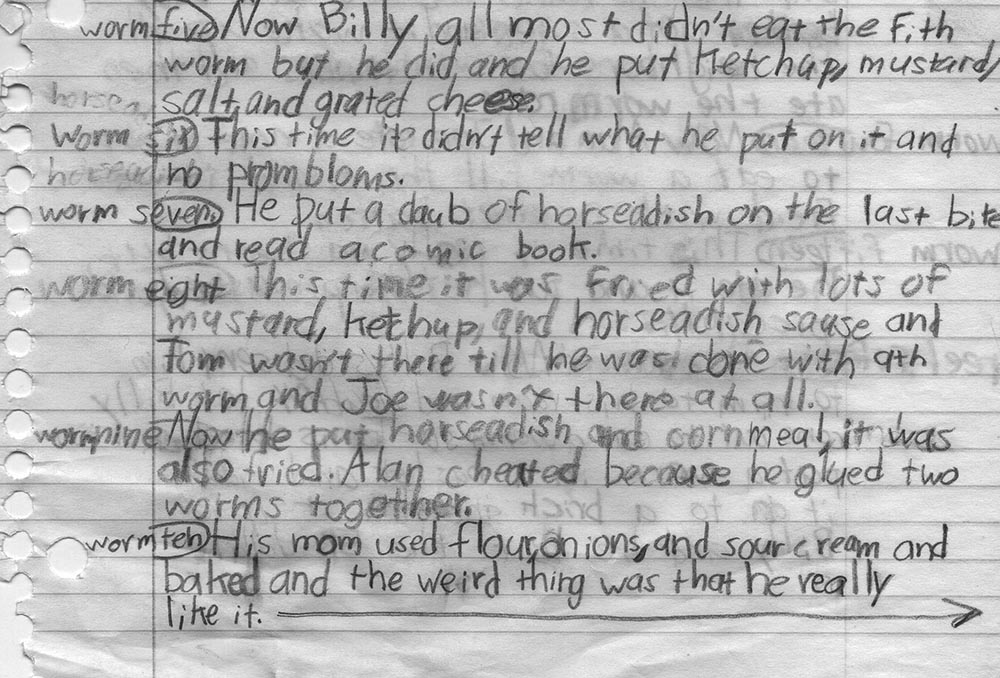 worm five Now Billy all most didn't eat the fith
worm but he did, and he put ketchap, mustard,
salt, and grated cheese.
Worm six This time it didn't tell what he put on it and
no prombloms.
worm seven, He put a daub of horseadish on the last bite
and read a comic book.
worm eight This time it was fried with lots of
mustard, ketchup, and horseadish sause and
Tom wasn't there till he was done with 9th
worm, and Joe wasn't there at all.
worm nine Now he put horseadish and cornmeal, it was
also fried. Alan cheated because he glued two
worms together.
worm ten His mom used flour, onions, and sour cream and
baked and the weird thing was that he really
like it.